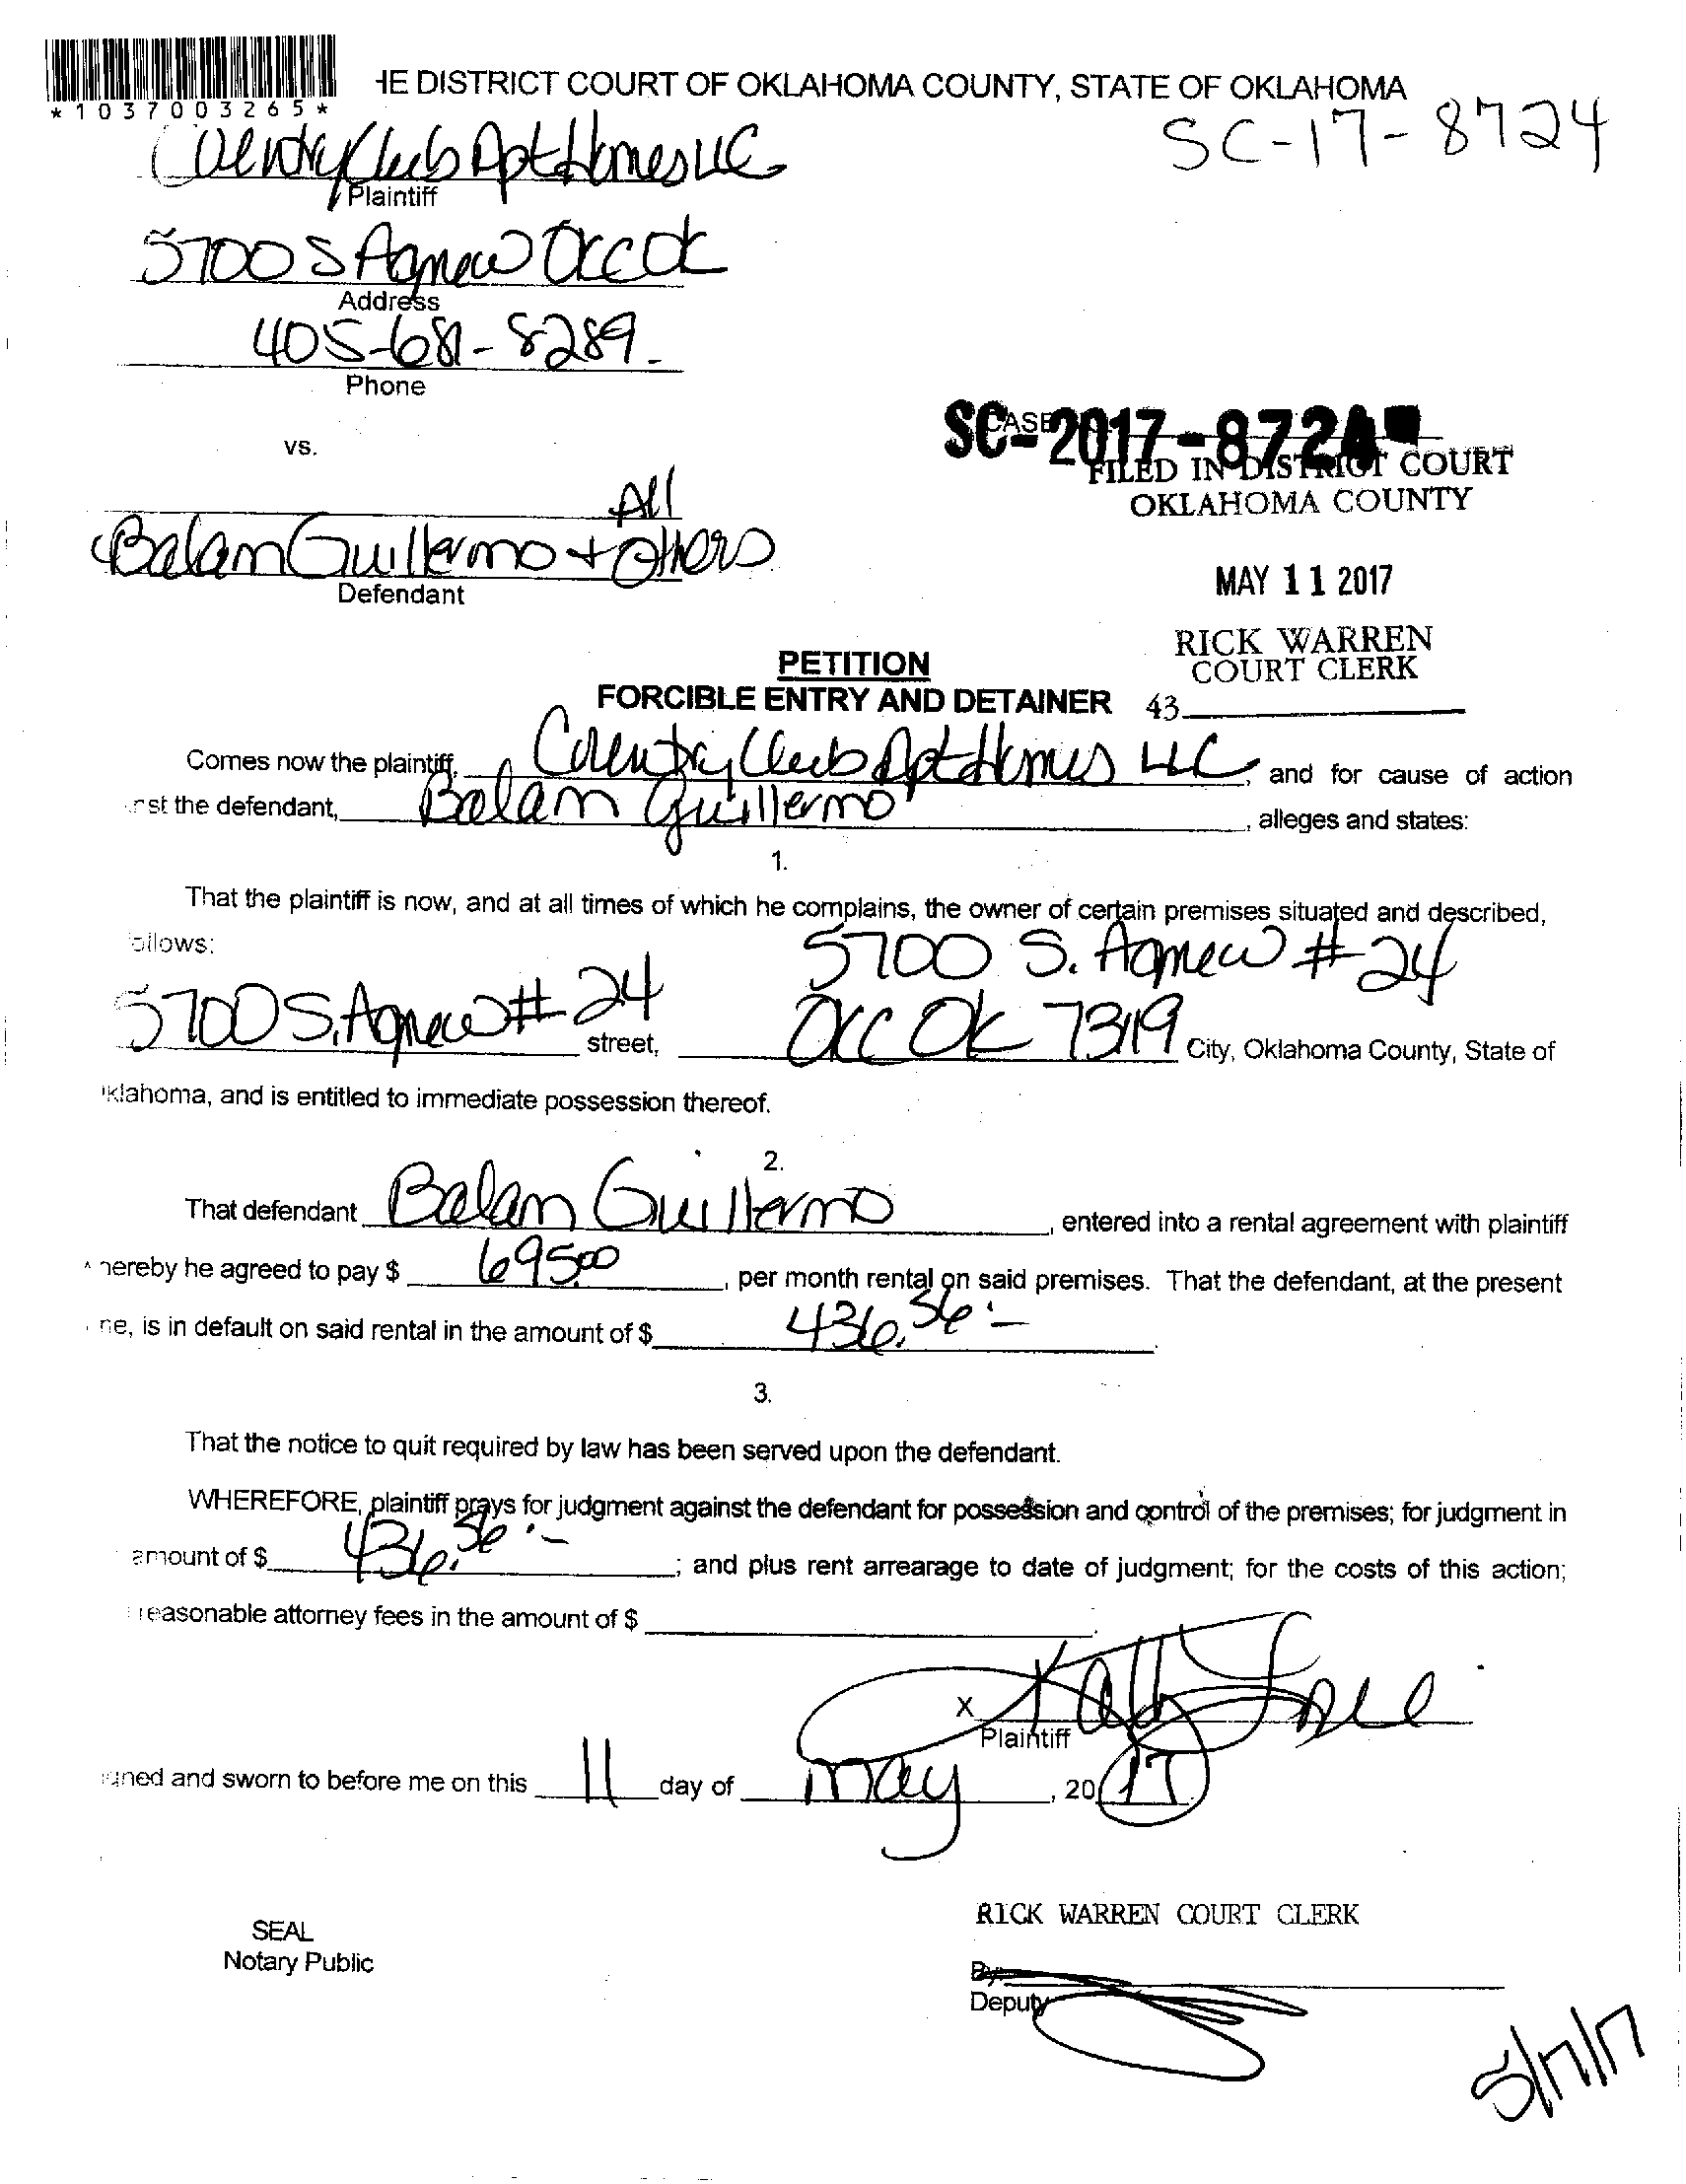 *1037003265*
HE DISTRICT COURT OF OKLAHOMA COUNTY, STATE OF OKLAHOMA
SC-17-8724
Country Club Apt Homes LLC
Plaintiff
5700 S Agnew OKC OK
Address
405-681-8289
Phone
vs.
SC-2017-8724
CASE
FILED IN DISTRICT COURT
OKLAHOMA COUNTY
All
Balam Guillermo + Others
Defendant
MAY 11 2017
RICK WARREN
COURT CLERK
PETITION
FORCIBLE ENTRY AND DETAINER
43
Comes now the plaintiff, Country Club Apt Homes LLC, and for cause of action
nst the defendant, Balam Guillermo, alleges and states:
1.
That the plaintiff is now, and at all times of which he complains, the owner of certain premises situated and described,
ollows:
5700 S. Agnew # 24
5700 S. Agnew # 24 street, OKC OK 73119 City, Oklahoma County, State of
klahoma, and is entitled to immediate possession thereof.
2.
That defendant Balam Guillermo, entered into a rental agreement with plaintiff
hereby he agreed to pay $ 695.00, per month rental on said premises. That the defendant, at the present
ne, is in default on said rental in the amount of $ 436.56
3.
That the notice to quit required by law has been served upon the defendant.
WHEREFORE, plaintiff prays for judgment against the defendant for possession and control of the premises; for judgment in
amount of $ 436.56; and plus rent arrearage to date of judgment; for the costs of this action;
reasonable attorney fees in the amount of $
X
Plaintiff
gned and sworn to before me on this 11 day of May, 2017
RICK WARREN COURT CLERK
SEAL
Notary Public
By:
Deputy
5/17/17